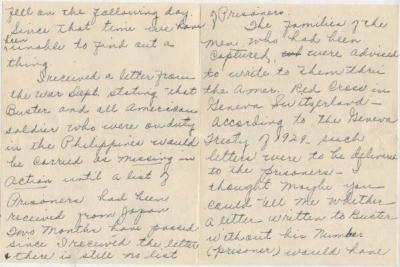 fell on the following day.
Since that time we have
been
unable to find out a
thing
I received a letter from
the War Dept. stating that
Buster and all American
soldier who were on duty
in the Philippines would
be carried as missing in
Action until a list of
Prisoners had been
received from Japan.
Two Months have passed
since I received the letter
& there is still no list
of Prisoners.
The families of the
men who had been
captured, were advised
to write to them thru
the Amer. Red Cross in
Geneva Switzerland—
According to the Geneva
Treaty of 1929 such
letters were to be delivered
to the Prisoners—I
thought maybe you
could tell me whether
a letter written to Buster
without his number
(prisoner) would have